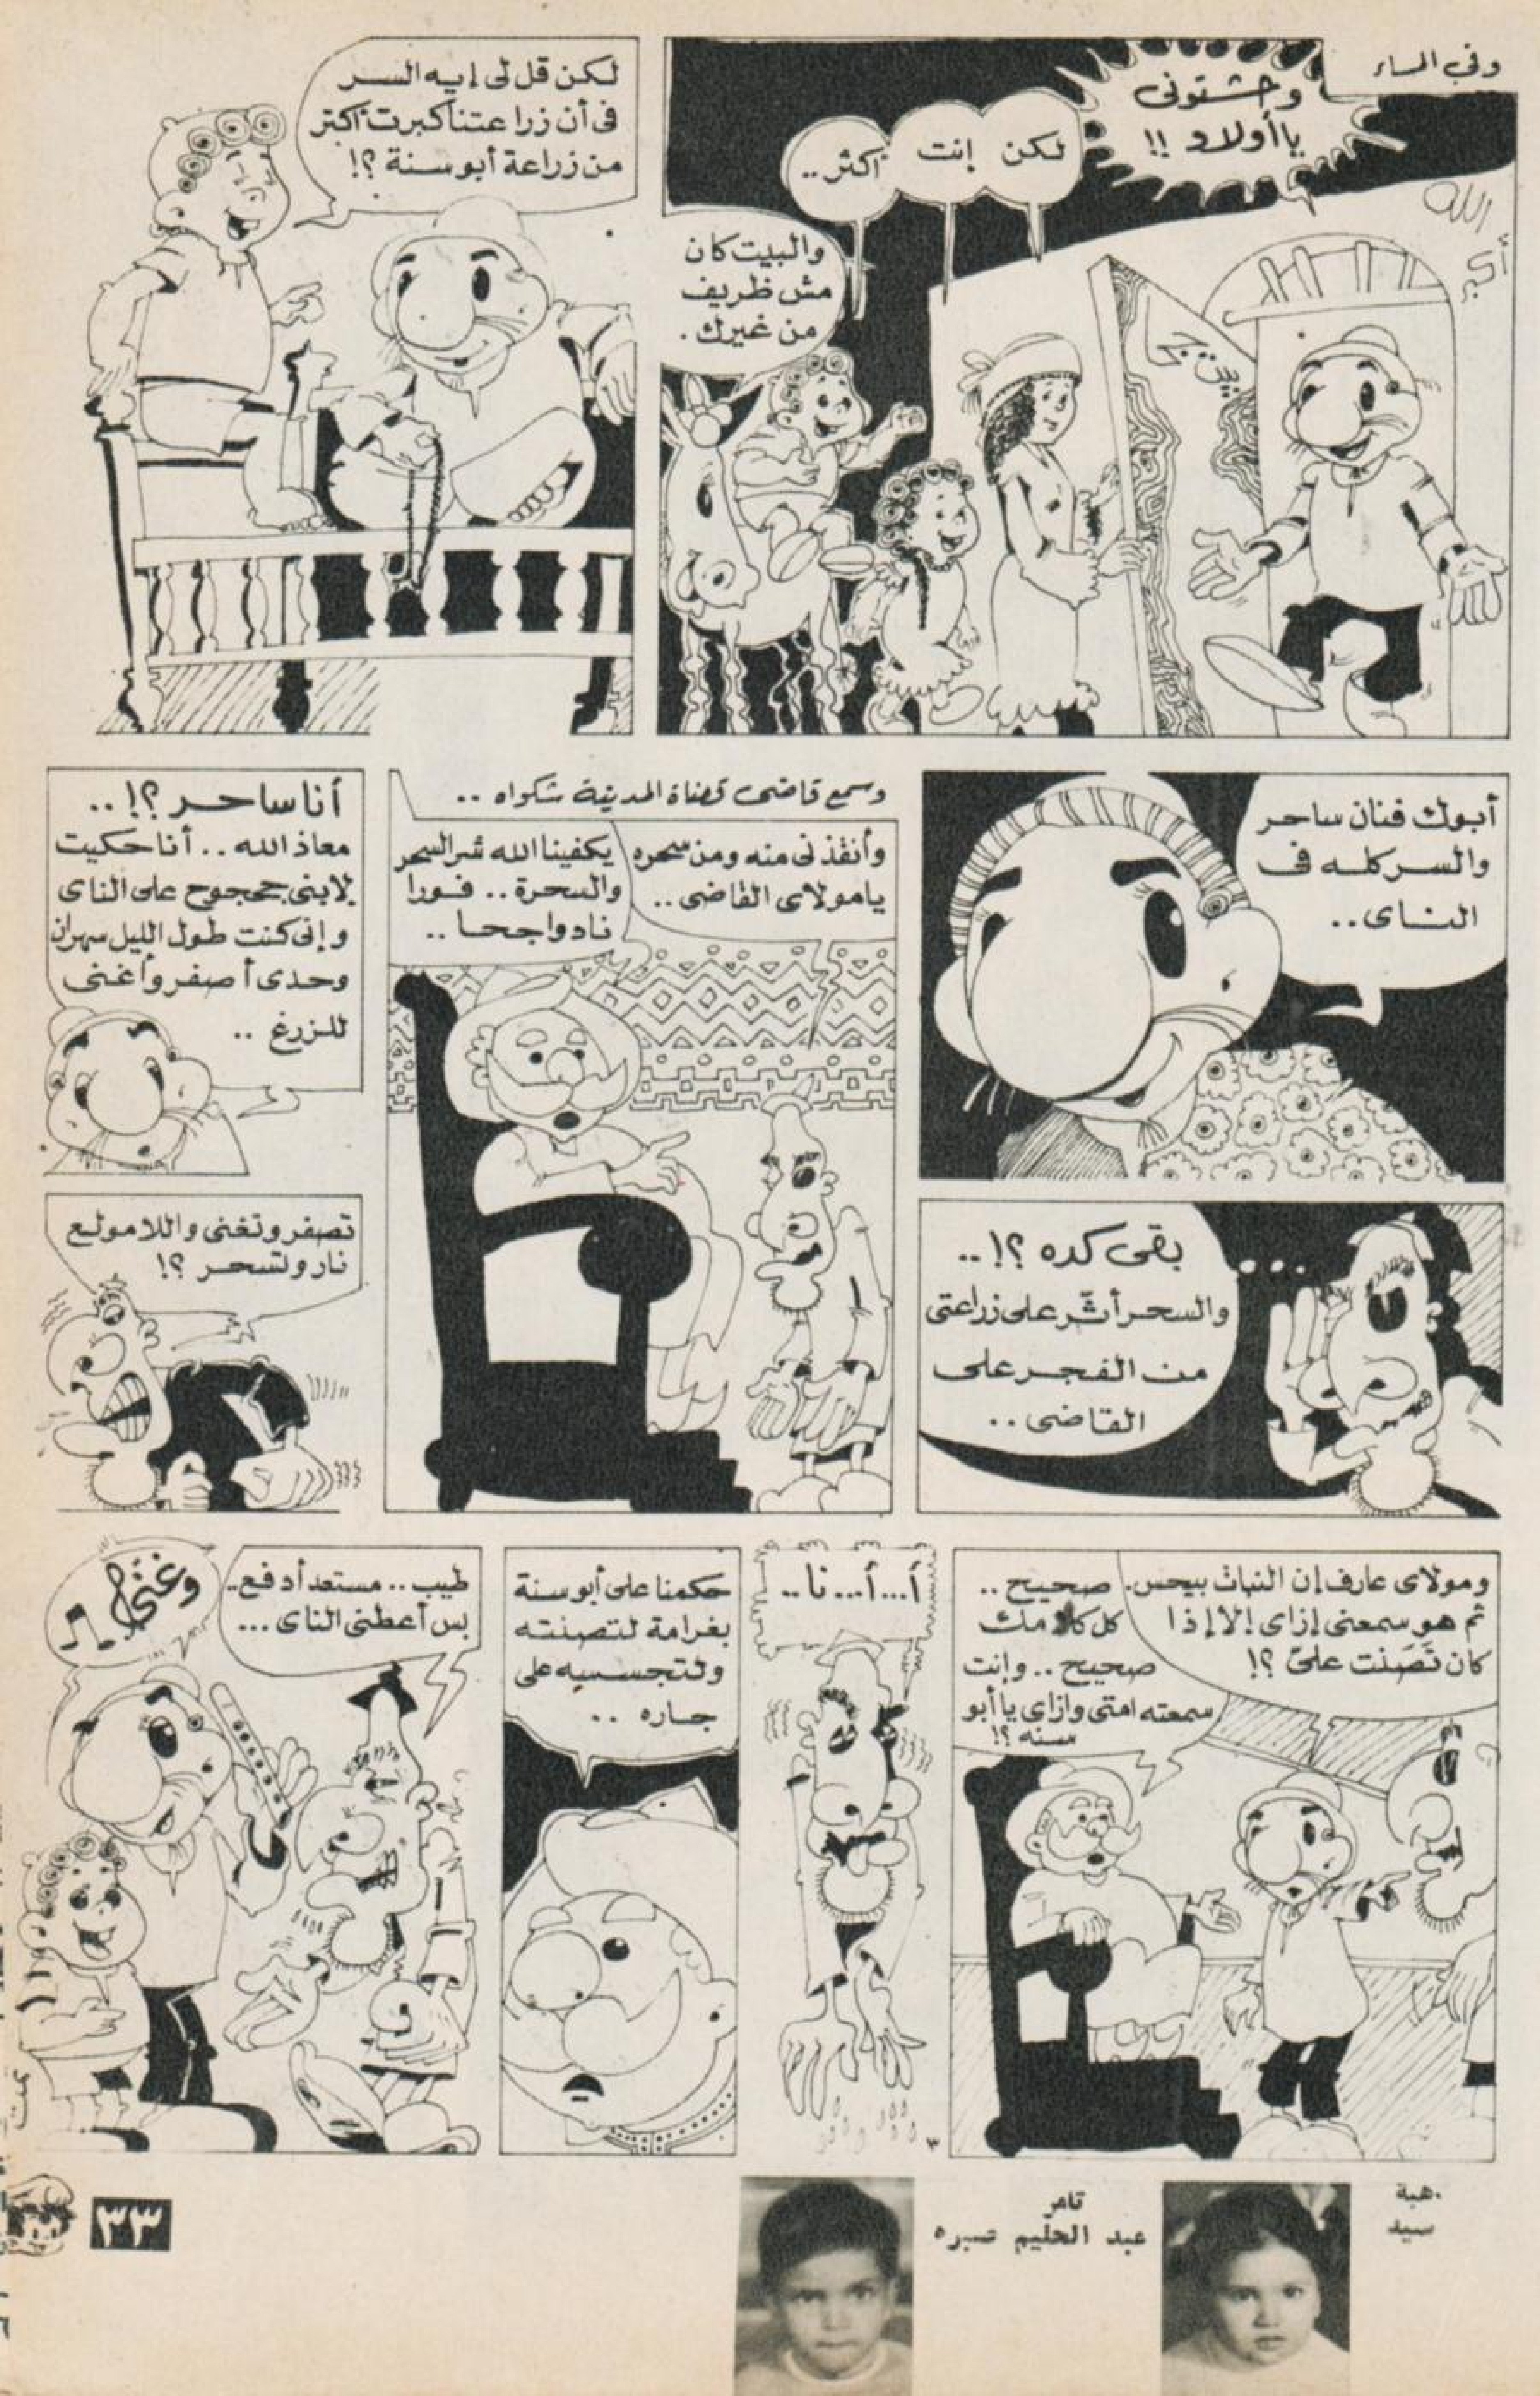 وفي المساء
وحشتونى
يا أولاد !!
لكن إنت أكثر..
والبيت كان
مش ظريف
من غيرك .
الله
أكبر
بيت جحا
لكن قل لى إيه السر
فى أن زراعتنا كبرت أكتر
من زراعة أبو سنة ؟!
أبوك فنان ساحر
والسر كله فى
الناى..
بقى كده ؟! ..
والسحر أثّر على زراعتى
من الفجر على
القاضى ..
وسمع قاضى قضاة المدينة شكواه ..
وأنقذنى منه ومن سحره
يا مولاى القاضى ..
يكفينا الله شر السحر
والسحرة .. فورا
نادوا جحا ..
أنا ساحر ؟! ..
معاذ الله .. أنا حكيت
لابنى جحجوح على الناى
وإنى كنت طول الليل سهران
وحدى أصفر وأغنى
للزرع ..
تصفر وتغنى واللا مولع
نار وتسحر ؟!
ومولاى عارف إن النبات بيحس.
ثم هو سمعنى إزاى إلا إذا
كان تَصَنت علىّ ؟!
صحيح ..
كل كلامك
صحيح .. وإنت
سمعته امتى وازاى يا أبو
سنه ؟!
أ...أ... نا ..
حكمنا على أبو سنة
بغرامة لتصنته
ولتجسسه على
جاره ..
طيب .. مستعد أدفع..
بس أعطنى الناى ...
وغنى
٣
هبة
سيد
تامر
عبد الحليم صبره
٣٣